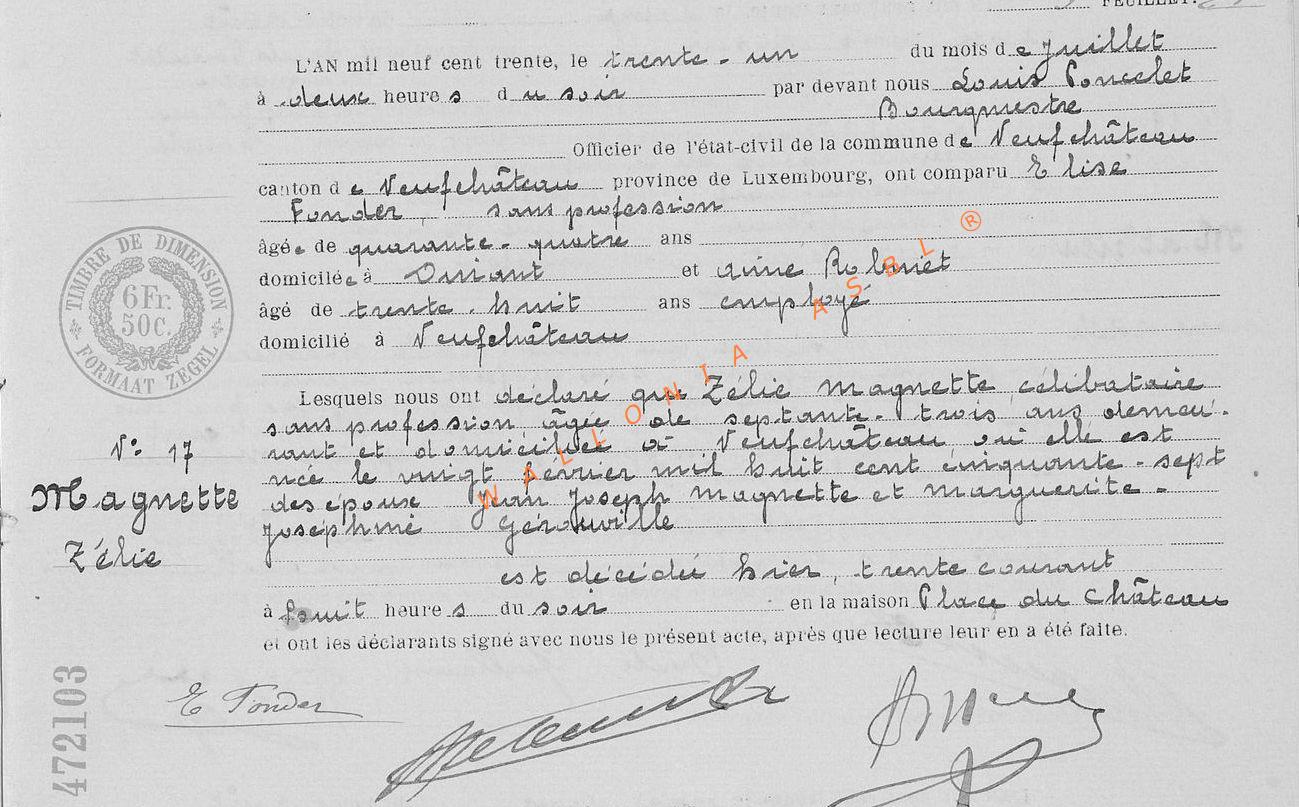 FEUILLET.
L'AN mil neuf cent trente, le trente-un du mois de Juillet
à deux heures du soir par devant nous Louis Poncelet
Bourgmestre
Officier de l'état-civil de la commune de Neufchâteau
canton de Neufchâteau province de Luxembourg, ont comparu Elise
Fonder, sans profession
âgée de quarante-quatre ans
domicilée à Dinant et Robinet
âgé de trente-huit ans employé
domicilié à Neufchâteau
Lesquels nous ont déclaré que Zélie Magnette célibataire
sans profession âgée de septante-trois ans demeu-
rant et domiciliée à Neufchâteau où elle est
née le vingt février mil huit cent cinquante-sept
des époux Jean Joseph Magnette et Marguerite-
Joséphine Gérouville
est décédée hier, trente courant
à huit heures du soir en la maison Place du Château
et ont les déclarants signé avec nous le présent acte, après que lecture leur en a été faite.
N° 17
Magnette
Zélie
E Fonder
TIMBRE DE DIMENSION
6 Fr.
50c.
FORMAAT ZEGEL
472103
WALLONIA ASBL ®